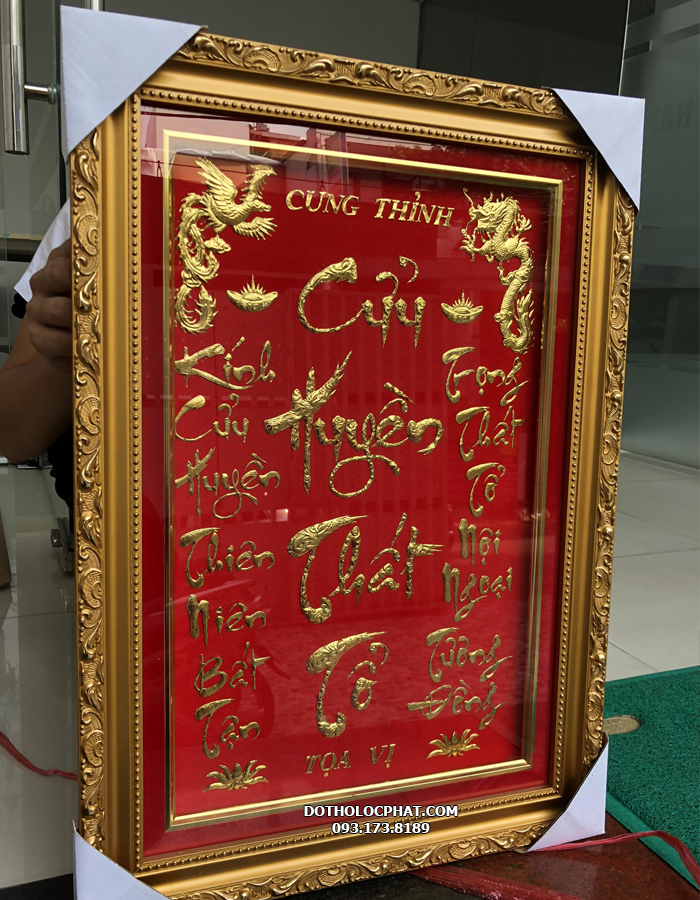 CUNG THỈNH
Cửu
Huyền
Thất
Tổ
Kính
Cửu
Huyền
Thiên
Niên
Bất
Tận
Trọng
Thất
Tổ
Nội
Ngoại
Tường
Đồng
TỌA VỊ
DOTHOLOCPHAT.COM
093.173.8189